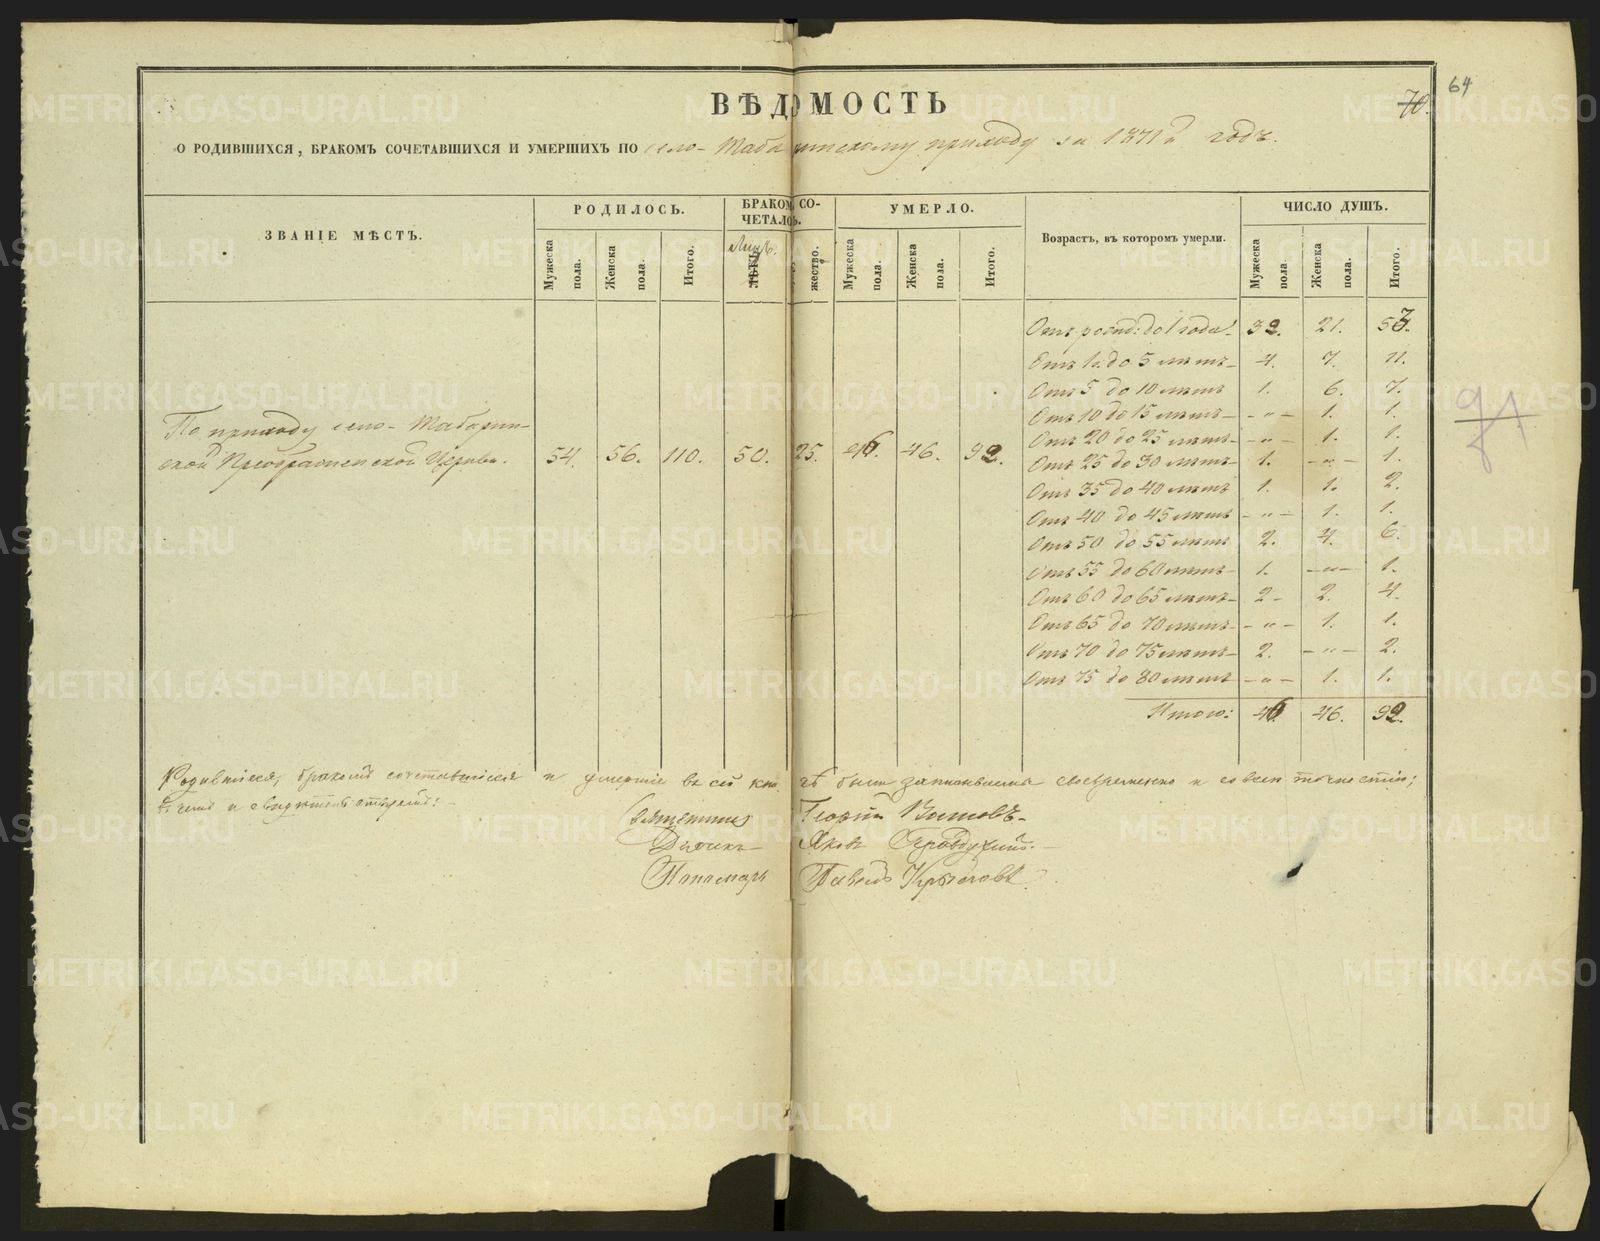 64
70.
ВѢДОМОСТЬ
О РОДИВШИХСЯ, БРАКОМЪ СОЧЕТАВШИХСЯ И УМЕРШИХЪ ПО село-Табаринскому приходу за 1871й годъ.
ЗВАНІЕ МѢСТЪ.
РОДИЛОСЬ.
Мужеска пола.
Женска пола.
Итого.
БРАКОМ СО-
ЧЕТАЛОСЬ.
Лицъ.
жество.
УМЕРЛО.
Мужеска пола.
Женска пола.
Итого.
Возрастъ, въ которомъ умерли.
ЧИСЛО ДУШЪ.
Мужеска пола.
Женска пола.
Итого.
По приходу село-Табарин-
ской Преображенской Церкви. 54. 56. 110. 50. 25. 46. 46. 92.
Отъ рожд: до 1 года. 32. 21. 53.
Отъ 1 г. до 5 лѣтъ 4. 7. 11.
Отъ 5 до 10 лѣтъ 1. 6. 7.
Отъ 10 до 15 лѣтъ - „ - 1. 1.
Отъ 20 до 25 лѣтъ - „ - 1. 1.
Отъ 25 до 30 лѣтъ 1. - „ - 1.
Отъ 35 до 40 лѣтъ 1. 1. 2.
Отъ 40 до 45 лѣтъ - „ - 1. 1.
Отъ 50 до 55 лѣтъ 2. 4. 6.
Отъ 55 до 60 лѣтъ 1. - „ - 1.
Отъ 60 до 65 лѣтъ 2 - 2. 4.
Отъ 65 до 70 лѣтъ - „ - 1. 1.
Отъ 70 до 75 лѣтъ 2. - „ - 2.
Отъ 75 до 80 лѣтъ - „ - 1. 1.
Итого: 46. 46. 92.
Родившіеся, бракомъ сочетавшіеся и умершіе въ сей книгѣ были записываемы своевременно и со всею точностію;
въ чемъ и свидѣтельствуемъ:
Священникъ Георгій
Дьячекъ Яковъ
Пономарь Павелъ
METRIKI.GASO-URAL.RU